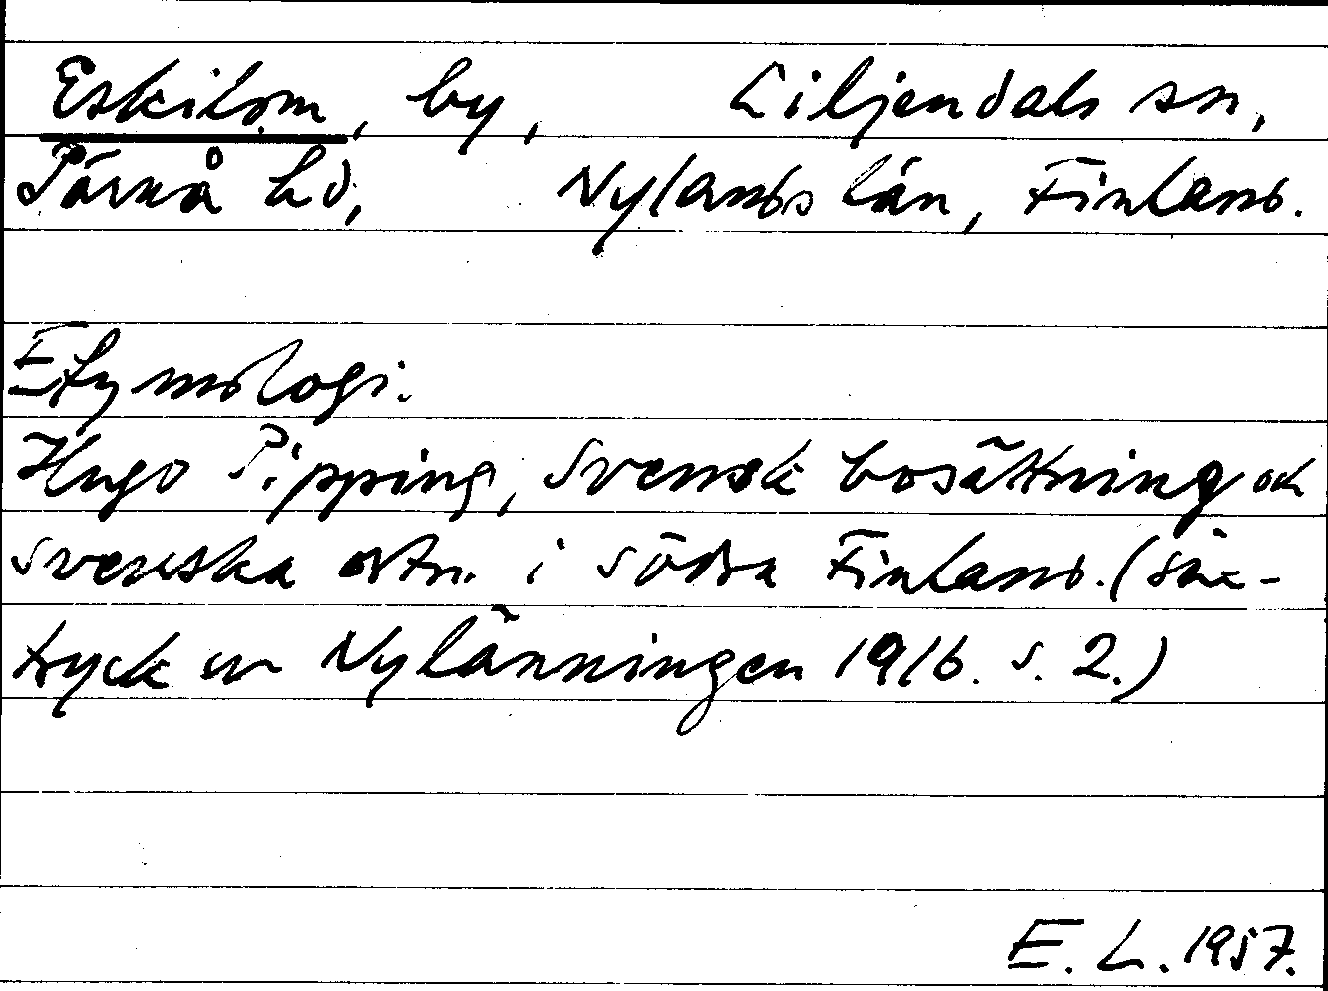 Eskilom, by, Liljendals sn,
Pärnå hd, Nylands län, Finland.
Etymologi.
Hugo Pipping, Svensk bosättning och
svenska ortn. i södra Finland. (Sär-
tryck ur Nylänningen 1916. s. 2.)
E. L. 1957.